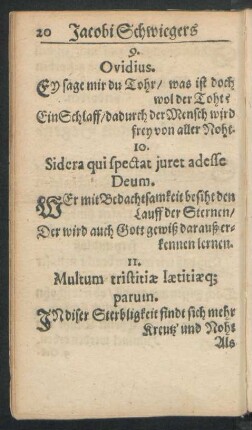 20 Jacobi Schwiegers
9.
Ovidius.
Ey sage mir du Tohr / was ist doch
wol der Toht?
Ein Schlaff / dadurch der Mensch wird
frey von aller Noht.
10.
Sidera qui spectat juret adesse
Deum.
WEr mit Bedachtsamkeit besiht den
Lauff der Sternen /
Der wird auch Gott gewiß darauß er-
kennen lernen.
11.
Multum tristitiæ lætitiæq;
parum.
INdiser Sterbligkeit findt sich mehr
Kreutz' und Noht
Als